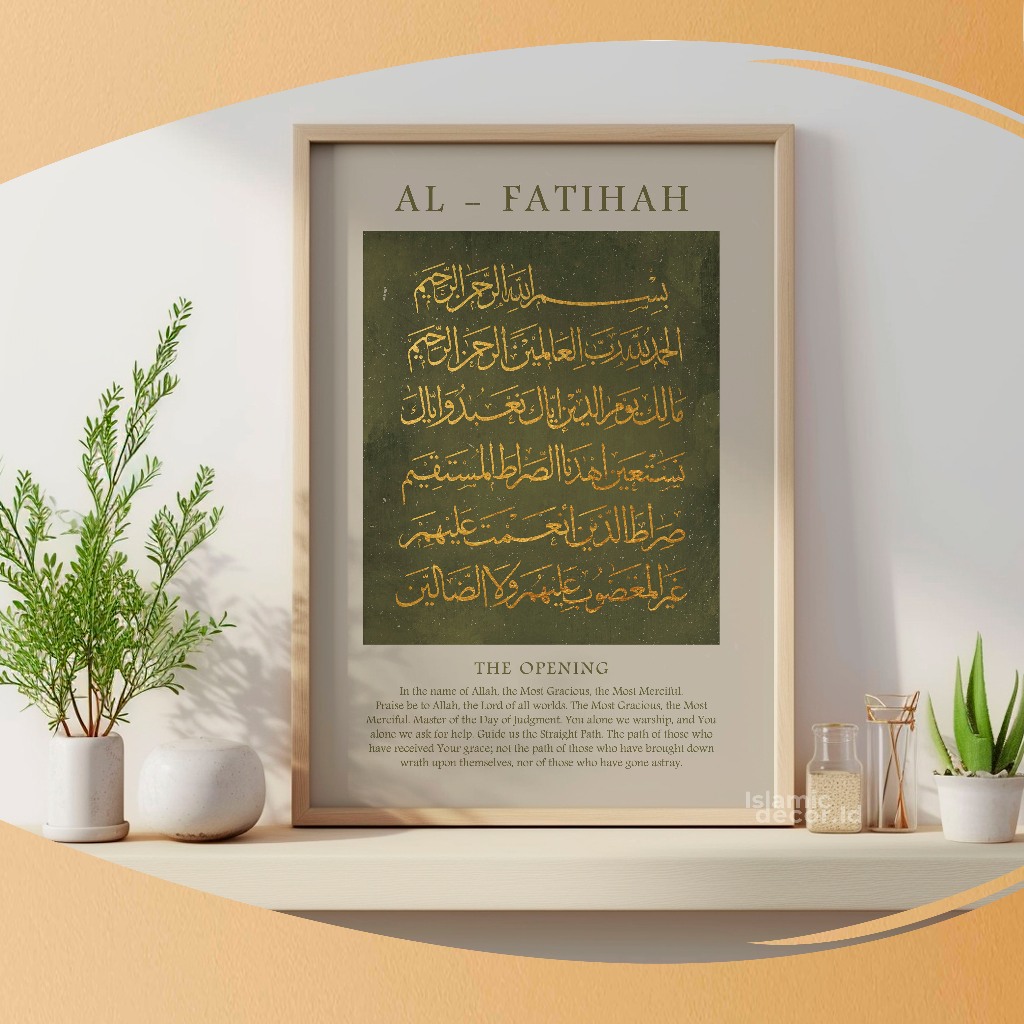 AL – FATIHAH
بسم الله الرحمن الرحيم
الحمد لله رب العالمين الرحمن الرحيم
مالك يوم الدين اياك نعبد واياك
نستعين اهدنا الصراط المستقيم
صراط الذين انعمت عليهم
غير المغضوب عليهم ولا الضالين
THE OPENING
In the name of Allah, the Most Gracious, the Most Merciful.
Praise be to Allah, the Lord of all worlds. The Most Gracious, the Most
Merciful. Master of the Day of Judgment. You alone we warship, and You
alone we ask for help. Guide us the Straight Path. The path of those who
have received Your grace; not the path of those who have brought down
wrath upon themselves, nor of those who have gone astray.
Islamic
decor.lc